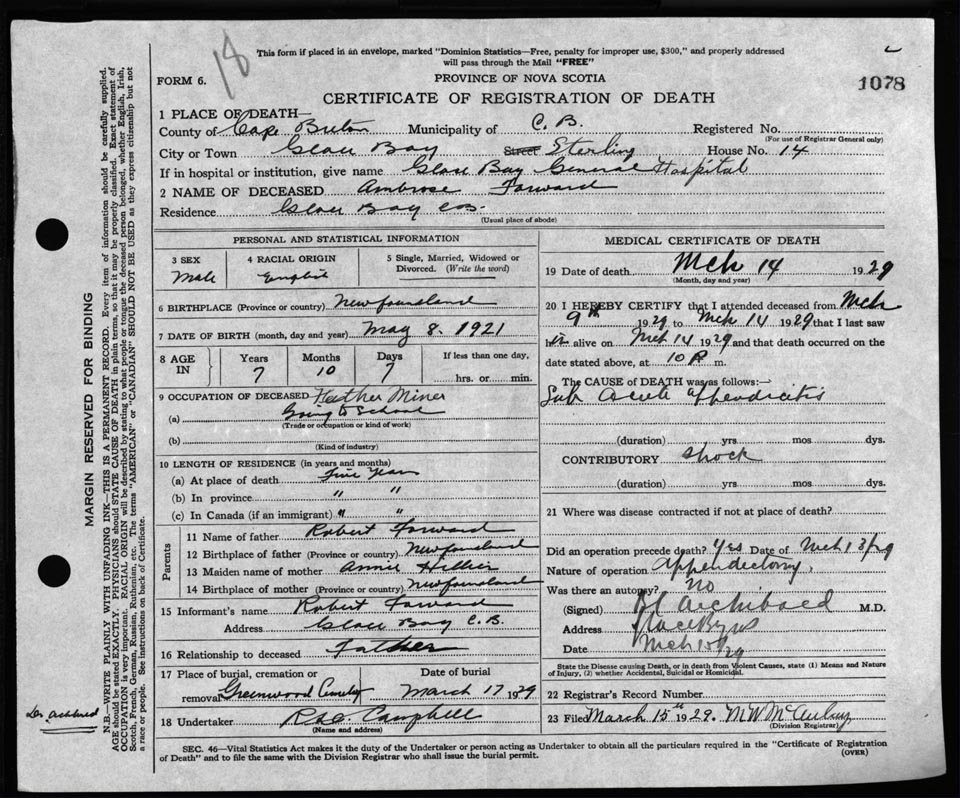 18
This form if placed in an envelope, marked "Dominion Statistics—Free, penalty for improper use, $300," and properly addressed
will pass through the Mail "FREE"
FORM 6.
PROVINCE OF NOVA SCOTIA
1078
CERTIFICATE OF REGISTRATION OF DEATH
1 PLACE OF DEATH—
County of Cape Breton Municipality of C. B. Registered No.
(For use of Registrar General only)
City or Town Glace Bay Street Sterling House No. 14
If in hospital or institution, give name Glace Bay General Hospital
2 NAME OF DECEASED Ambrose Forward
Residence Glace Bay C.B.
(Usual place of abode)
PERSONAL AND STATISTICAL INFORMATION
3 SEX 4 RACIAL ORIGIN 5 Single, Married, Widowed or
Divorced. (Write the word)
Male English
6 BIRTHPLACE (Province or country) Newfoundland
7 DATE OF BIRTH (month, day and year) May 8. 1921
8 AGE IN Years Months Days If less than one day,
7 10 7 hrs. or min.
9 OCCUPATION OF DECEASED Father Miner
(a) Going to School
(Trade or occupation or kind of work)
(b)
(Kind of industry)
10 LENGTH OF RESIDENCE (in years and months)
(a) At place of death Five Years
(b) In province " "
(c) In Canada (if an immigrant) " "
Parents
11 Name of father Robert Forward
12 Birthplace of father (Province or country) Newfoundland
13 Maiden name of mother Annie Hillier
14 Birthplace of mother (Province or country) Newfoundland
15 Informant's name Robert Forward
Address Glace Bay C.B.
16 Relationship to deceased Father
17 Place of burial, cremation or Date of burial
removal Greenwood Cemetery March 17 1929
18 Undertaker Campbell
(Name and address)
MEDICAL CERTIFICATE OF DEATH
19 Date of death Mch 14 1929
(Month, day and year)
20 I HEREBY CERTIFY that I attended deceased from Mch
9th 1929 to Mch 14 1929 that I last saw
him alive on Mch 14 1929 and that death occurred on the
date stated above, at 10 P m.
The CAUSE of DEATH was as follows:—
Sub Acute Appendicitis
(duration) yrs mos dys.
CONTRIBUTORY Shock
(duration) yrs mos dys.
21 Where was disease contracted if not at place of death?
Did an operation precede death? Yes Date of Mch 13/29
Nature of operation Appendectomy,
Was there an autopsy? No
(Signed) Archibald M.D.
Address Glace Bay NS
Date Mch 15/29
State the Disease causing Death, or in death from Violent Causes, state (1) Means and Nature
of Injury, (2) whether Accidental, Suicidal or Homicidal.
22 Registrar's Record Number
23 Filed March 15th 1929.
(Division Registrar)
SEC. 46—Vital Statistics Act makes it the duty of the Undertaker or person acting as Undertaker to obtain all the particulars required in the "Certificate of Registration
of Death" and to file the same with the Division Registrar who shall issue the burial permit.
(OVER)
MARGIN RESERVED FOR BINDING
N.B.—WRITE PLAINLY WITH UNFADING INK—THIS IS A PERMANENT RECORD. Every item of information should be carefully supplied.
AGE should be stated EXACTLY. PHYSICIANS should STATE CAUSE OF DEATH in plain terms, so that it may be properly classified. Exact statement of
OCCUPATION is very important. RACIAL ORIGIN will be described by stating to what people or tongue the deceased person belonged, whether English, Irish,
Scotch, French, German, Russian, Ruthenian, etc. The terms "AMERICAN" or "CANADIAN" SHOULD NOT BE USED as they express citizenship but not
a race or people. See instructions on back of Certificate.